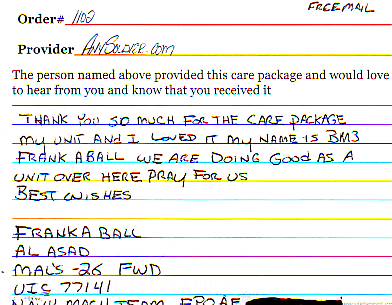 FREEMAIL
Order# 1102
Provider AnySoldier.com
The person named above provided this care package and would love
to hear from you and know that you received it
THANK YOU SO MUCH FOR THE CARE PACKAGE
MY UNIT AND I LOVED IT MY NAME IS BM3
FRANK ABALL WE ARE DOING GOOD AS A
UNIT OVER HERE PRAY FOR US
BEST WISHES
FRANK A BALL
AL ASAD
MALS-26 FWD
UIC 77141
NAVY MACH TEAM